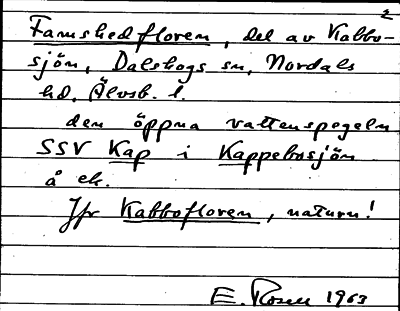 2
Famshedfloren, del av Kabbo-
sjön, Dalskogs sn, Nordals
hd, Älvsb. l.
den öppna vattenspegeln
SSV Kap i Kappebosjön
å ek.
Jfr Kabbofloren, naturn!
E. Rosen 1963